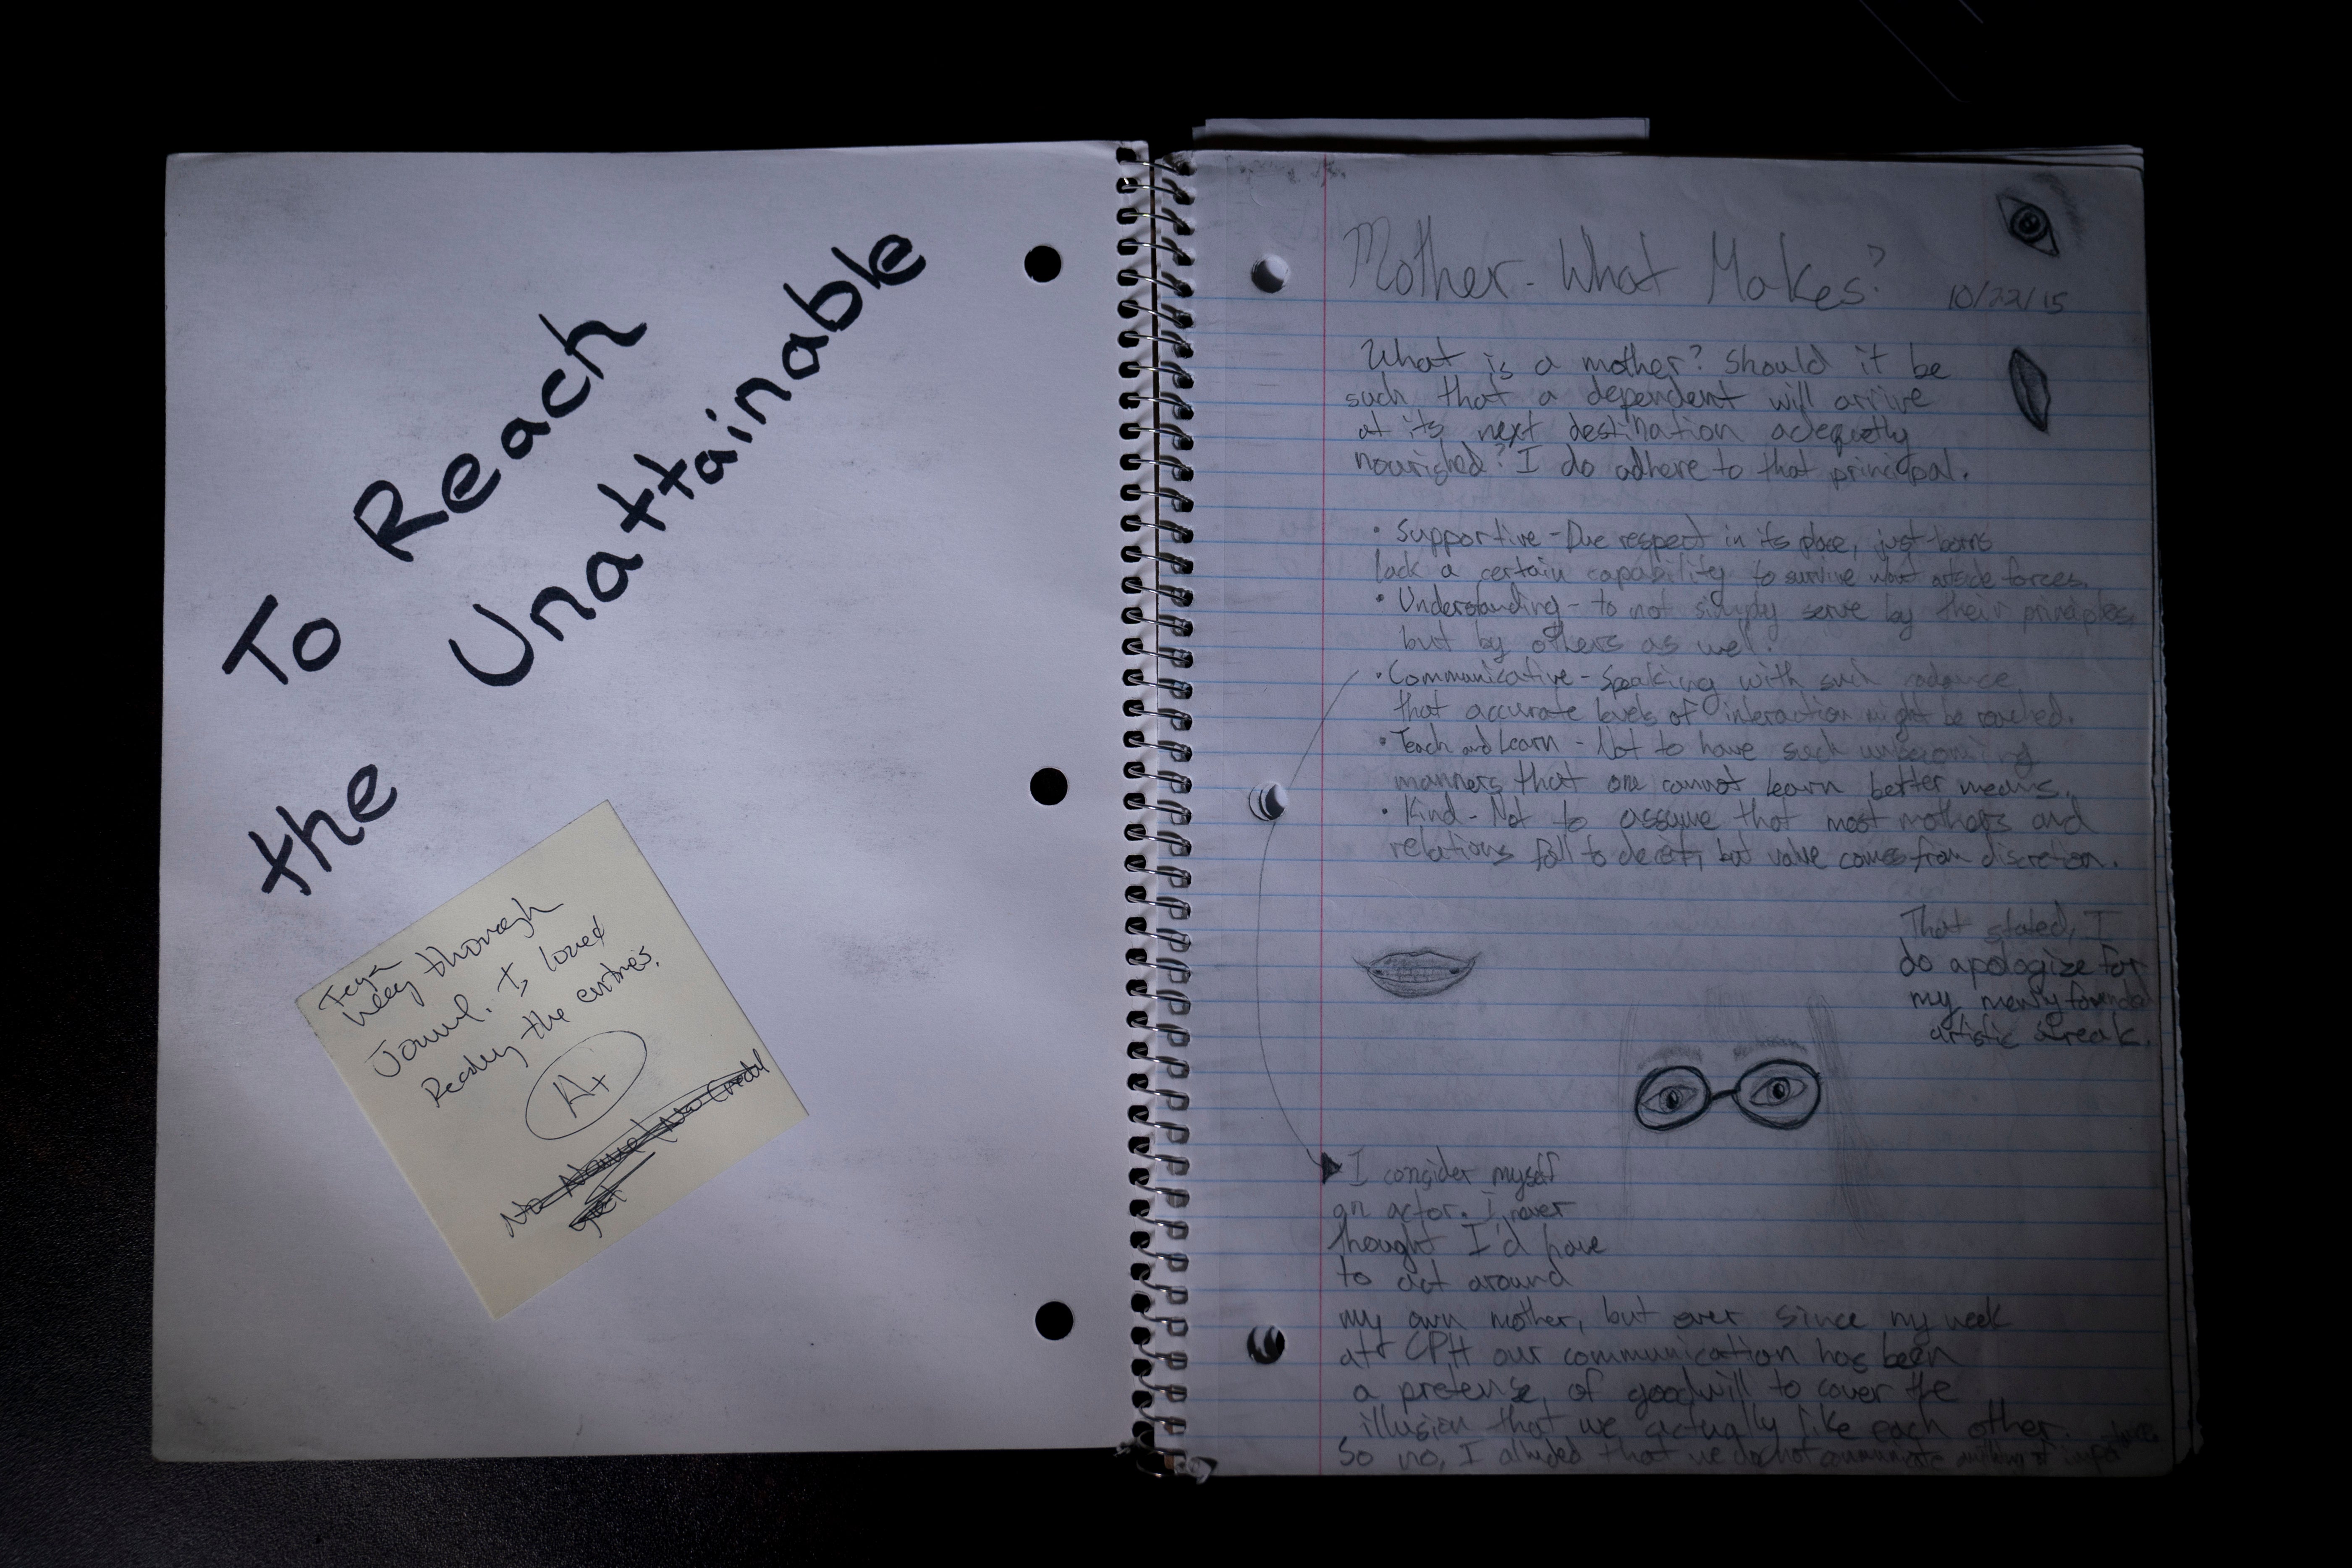 To Reach
the Unattainable
very thorough
Journal. I loved
Reading the entries.
A+
No Name/No Credit
Mother - What Makes?
10/22/15
What is a mother? Should it be
such that a dependent will arrive
at its next destination adequetly
nourished? I do adhere to that principal.
• Supportive - Due respect in its place, just-borns
lack a certain capability to survive outside forces.
• Understanding - to not simply serve by their principles,
but by others as well.
• Communicative - Speaking with such radiance
that accurate levels of interaction might be reached.
• Teach and Learn - Not to have such unbecoming
manners that one cannot learn better means.
• Kind - Not to assume that most mothers and
relations fall to deceit, but value comes from discretion.
That stated, I
do apologize for
my newly founded
artistic streak.
I consider myself
an actor. I never
thought I'd have
to act around
my own mother, but ever since my week
at CPH our communication has been
a pretense of goodwill to cover the
illusion that we actually like each other.
So no, I alluded that we do not communicate